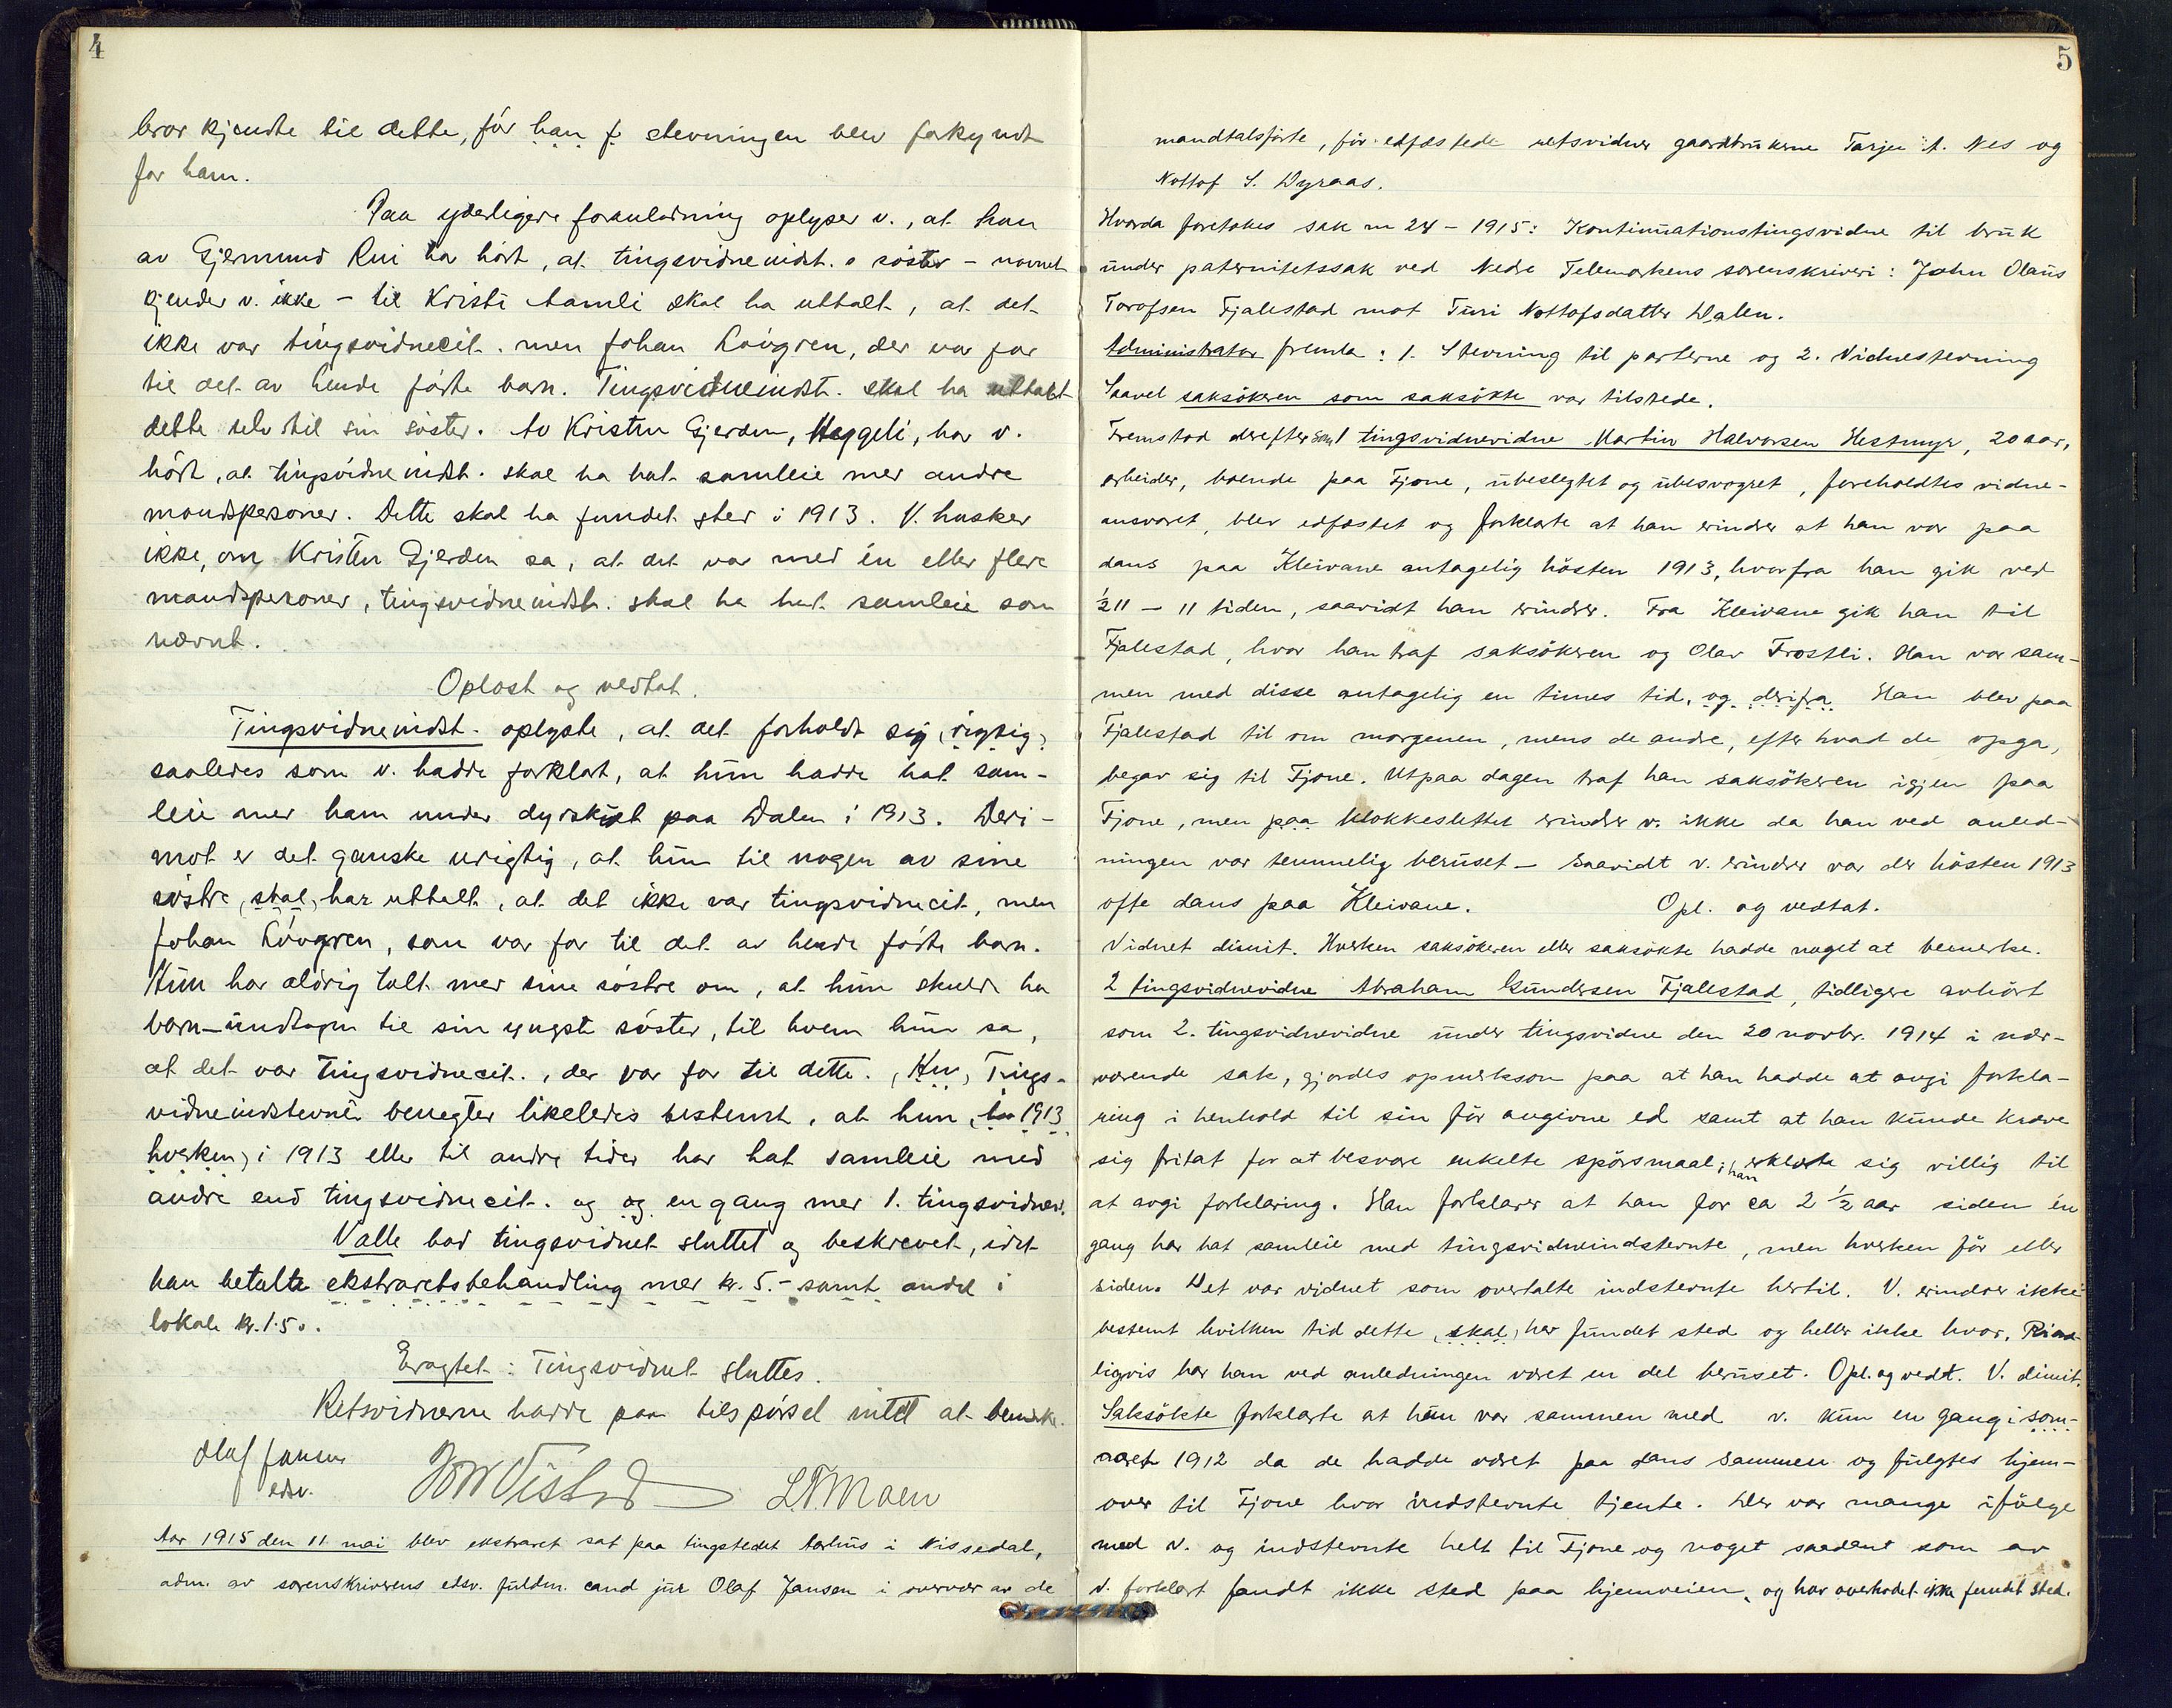 4
bror kjendte til dette, før han f. stevningen blev forkyndt
for ham.
Paa yderligere foranledning oplyser v., at han
av Gjermund Rui ha hørt, at tingsvidneindst.s søster - navnet
kjender v. ikke - til Kristi Aamli skal ha uttalt, at det
ikke var tingsvidnecit. men Johan Løvgren, der var far
til det av hende fødte barn. Tingsvidneindst. skal ha uttalt
dette selv til sin søster. Av Kristen Gjerden, Heggeli, har v.
hørt, at tingsvidneindst. skal ha hat samleie med andre
mandspersoner. Dette skal ha fundet sted i 1913. V. husker
ikke, om Kristen Gjerden sa, at det var med én eller flere
mandspersoner, tingsvidneindst. skal ha hat samleie som
nævnt.
Oplæst og vedtat.
Tingsvidneindst. oplyste, at det forholdt sig (rigtig)
saaledes som v. hadde forklart, at hun hadde hat sam-
leie med ham under dyrskuet paa Dalen i 1913. Deri-
mot er det ganske urigtig, at hun til nogen av sine
søstre (skal) har uttalt, at det ikke var tingsvidnecit, men
Johan Løvgren, som var far til det av hende fødte barn.
Hun har aldrig talt med sine søstre om, at hun skulde ha
barn - undtagen til sin yngste søster, til hvem hun sa,
at det var tingsvidnecit., der var far til dette. (Hun) Tings-
vidneindstevnte benegter likeledes bestemt, at hun (i 1913
hverken) i 1913 eller til andre tider har hat samleie med
andre end tingsvidnecit. og og en gang med 1. tingsvidnev.
Valle bad tingsvidnet sluttet og beskrevet, idet
han betalte ekstraretsbehandling med kr. 5.- samt andel i
lokale kr. 1.50.
Eragtet: Tingsvidnet sluttes.
Retsvidnerne hadde paa tilspørsel intet at bemerke.
Olaf Jansen
edsv.
L.T. Moen
Aar 1915 den 11. mai blev ekstraret sat paa tingstedet Aarhus i Nissedal,
adm. av sorenskriverens edsv. fuldm. cand jur Olaf Jansen i overvær av de
5
mandtalsførte, før edfæstede retsvidner gaardbrukerne Tarjei A. Nes og
Nottof S. Dyraas.
Hvorda foretakes sak nr 24 - 1915: Kontinuationstingsvidne til bruk
under paternitetssak ved Nedre Telemarkens sorenskriveri: John Olaus
Torofsen Fjalestad mot Turi Nottofsdatter Dalen.
Administrator fremla: 1. Stevning til parterne og 2. Vidnestevning
Saavel saksøkeren som saksøkte var tilstede.
Fremstod derefter som 1 tingsvidnevidne Martin Halvorsen Hestmyr, 20 aar,
arbeider, boende paa Fjone, ubeslegtet og ubesvogret, foreholdtes vidne-
ansvaret, blev edfæstet og forklarte at han erindrer at han var paa
dans paa Kleivane antagelig høsten 1913, hvorfra han gik ved
½11 - 11 tiden, saavidt han erindrer. Fra Kleivane gik han til
Fjalestad, hvor han traf saksøkeren og Olav Frostli. Han var sam-
men med disse antagelig en times tid, og derifra Han blev paa
Fjalestad til om morgenen, mens de andre, efter hvad de opga,
begav sig til Fjone. Utpaa dagen traf han saksøkeren igjen paa
Fjone, men paa klokkeslettet erindrer v. ikke da han ved anled-
ningen var temmelig beruset - Saavidt v. erindrer var der høsten 1913
ofte dans paa Kleivane. Opl. og vedtat.
Vidnet dimit. Hverken saksøkeren eller saksøkte hadde noget at bemerke.
2 tingsvidnevidne Abraham Gundersen Fjalestad, tidligere avhørt
som 2. tingsvidnevidne under tingsvidne den 20 novbr. 1914 i nær-
værende sak, gjordes opmerksom paa at han hadde at avgi forkla-
ring i henhold til sin før avgivne ed samt at han kunde kræve
sig fritat for at besvare enkelte spørsmaal; han erklærte sig villig til
at avgi forklaring. Han forklarer at han for ca 2 ½ aar siden én
gang har hat samleie med tingsvidneindstevnte, men hverken før eller
siden. Det var vidnet som overtalte indstevnte hertil. V. erindrer ikke
bestemt hvilken tid dette (skal) har fundet sted og heller ikke hvor. Rime-
ligvis har han ved anledningen været en del beruset. Opl. og vedt. V. dimit.
Saksøkte forklarte at hun var sammen med v. kun en gang i som-
meret 1912 da de hadde været paa dans sammen og fulgtes hjem-
over til Fjone hvor indstevnte tjente. Der var mange i følge
med v. og indstevnte helt til Fjone og noget saadant som av
v. forklart fandt ikke sted paa hjemveien, og har overhodet ikke fundet sted.